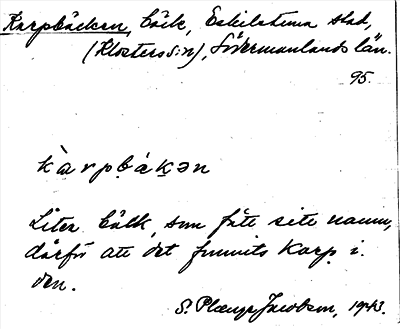 Karpbäcken, bäck, Eskilstuna stad,
(Klosters s:n), Södermanlands län.
95.
kàrpbä́kən
Liten bäck, som fått sitt namn,
därför att det funnits Karp i
den.
S. Jacobson, 1943.